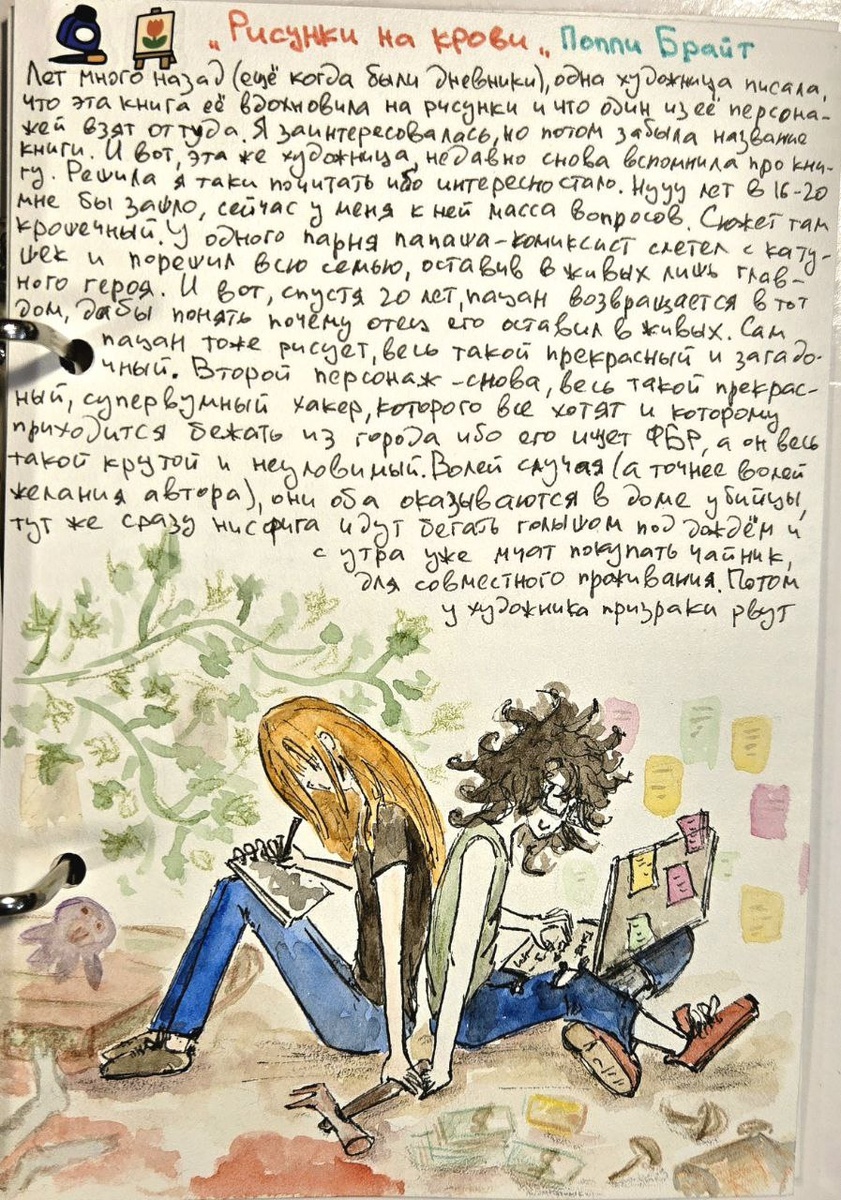 „Рисунки на крови„ Поппи Брайт
Лет много назад (ещё когда были дневники), одна художница писала,
что эта книга её вдохновила на рисунки и что один из её персона-
жей взят оттуда. Я заинтересовалась, но потом забыла название
книги. И вот, эта же художница, недавно снова вспомнила про кни-
гу. Решила я таки почитать ибо интересно стало. Нууу лет в 16-20
мне бы зашло, сейчас у меня к ней масса вопросов. Сюжет там
крошечный. У одного парня папаша-комиксист слетел с кату-
шек и порешил всю семью, оставив в живых лишь глав-
ного героя. И вот, спустя 20 лет, пацан возвращается в тот
дом, дабы понять почему отец его оставил в живых. Сам
пацан тоже рисует, весь такой прекрасный и загадо-
чный. Второй персонаж - снова, весь такой прекрас-
ный, супервумный хакер, которого все хотят и которому
приходится бежать из города ибо его ищет ФБР, а он весь
такой крутой и неуловимый. Волей случая (а точнее волей
желания автора), они оба оказываются в доме убийцы,
тут же сразу нисфига идут бегать голышом под дождём и
с утра уже мчат покупать чайник,
для совместного проживания. Потом
у художника призраки рвут